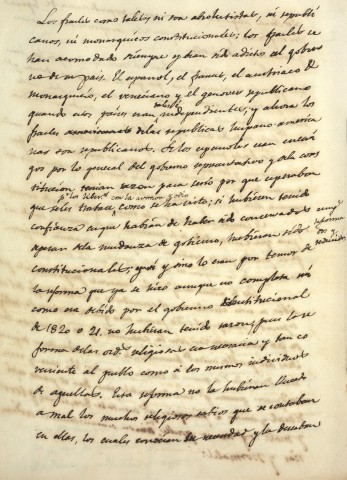 Los frailes como tales, ni son absolutistas, ni republi
canos, ni monarquicos constitucionales; los frailes se
han acomodado siempre y han sido adictos al gobier
no de su pais. El español, el frances, el austriaco
monarquico, el veneciano y el genoves republicano
quando esos países eran independientes, y ahora los
frailes de las republicas hispano america
nas son republicanos. Si los españoles eran enemi
gos por lo general del gobierno representativo y de la cons
titucion, tenian razon para serlo por que esperaban
que se les tratara, como se ha visto; si hubiesen tenido
confianza en que habian de haber sido conservados aun
apesar de la mudanza de gobierno, hubieran sido
constitucionales; y si no lo eran por temor de
reforma
reducidos
la reforma que ya se hizo aunque no completa ni
como era debido por el gobierno constitucional
de 1820 o 21. no hubieran tenido razon, pues la re
forma de las ord.s religiosas era necesaria y tan co
veniente al pueblo como á los mismos individuos
de aquellas. Esta reforma no la hubieran llevado
a mal los muchos religiosos sabios que se contaban
en ellas, los cuales conocian su necesidad y la deseaban